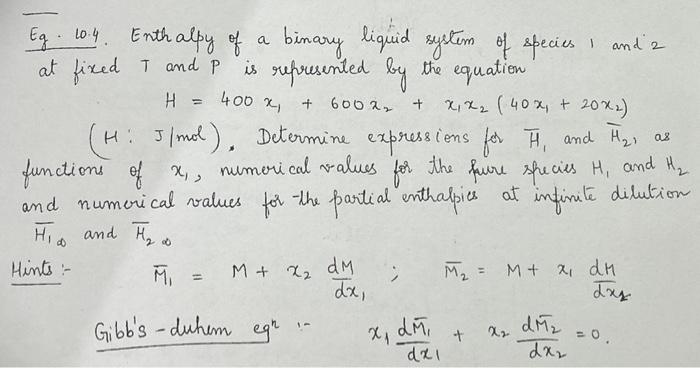 Eg. 10.4. Enthalpy of a binary liquid system of species 1 and 2
at fixed T and P is represented by the equation
H = 400 x₁ + 600 x₂ + x₁x₂ (40x₁ + 20x₂)
(H: J/mol). Determine expressions for H̅₁ and H̅₂, as
functions of x₁, numerical values for the pure species H₁ and H₂
and numerical values for the partial enthalpies at infinite dilution
H̅₁∞ and H̅₂∞
Hints :- M̅₁ = M + x₂ dM/dx₁ ; M̅₂ = M + x₁ dM/dx₂
Gibb's - duhem eqⁿ :- x₁ dM̅₁/dx₁ + x₂ dM̅₂/dx₂ = 0.